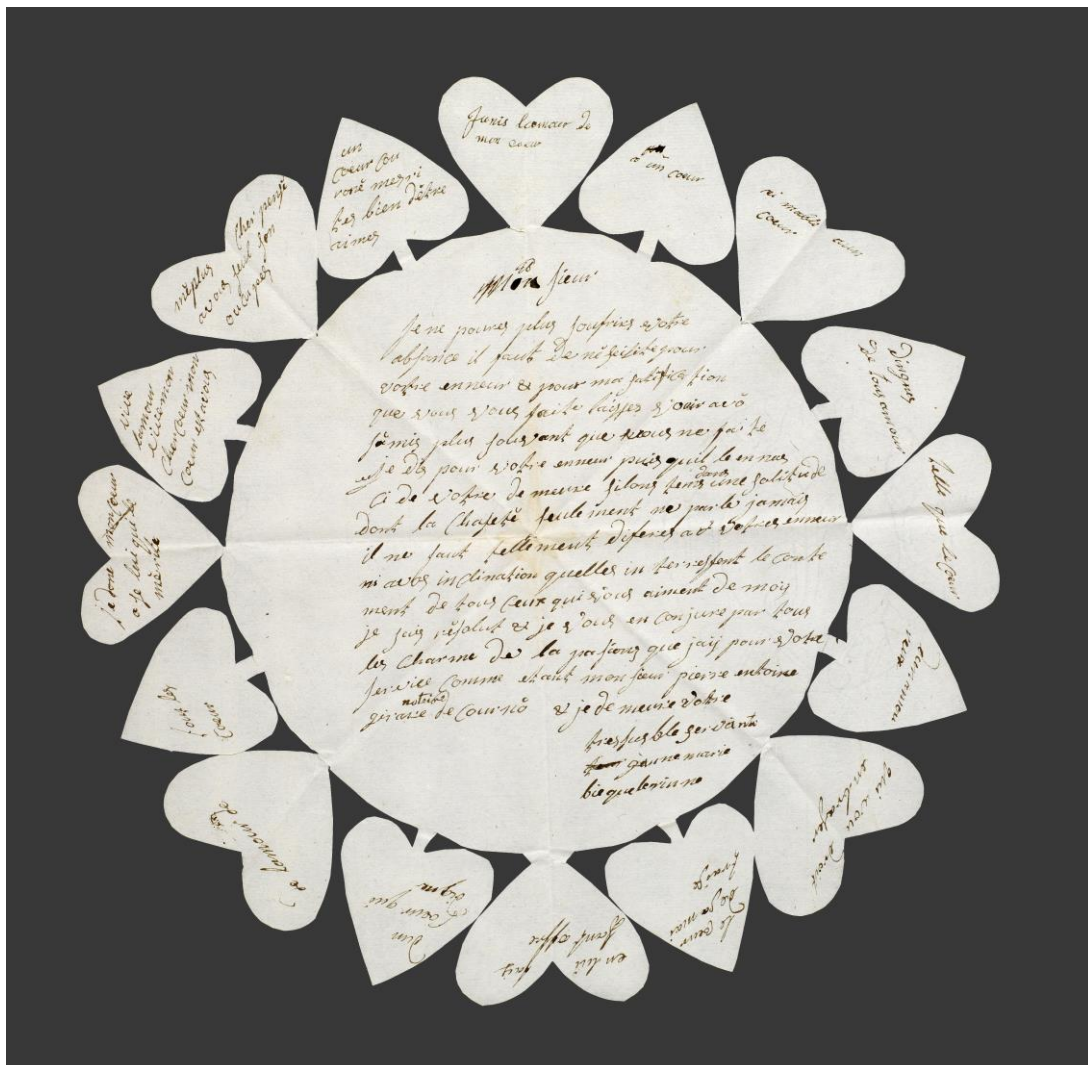 Monsieur
Je ne poures plus soufrires votre
absance il faut de nésésité pour
votre enneur & pour ma satisfaction
que vous vous faite laisses vouir avõ
sâmis plus souvant que vous ne faite
je dis pour votre enneur puis quil le en nas
Ci de votre de meure silons tems dans une solitude
dont la Chasteté seulement ne parle jamais
il ne faut tellement diferes a votres enneur
ni avos inclination quelles in terressent le conte
ment de tous Ceux qui vous aiment de moy
je suis résolut & je vous en conjure par tous
les Charme de la pasions que jaÿ pour votre
service Comme etant monsieur pierre entoine
girare notaire de Cournõ & je de meure votre
tres
servante
jeunemarie
Junis lamour de
mon cœur
a un cœur
ai mable aun
cœur
Dignes
De tous amour
telle que le cœur
qui vou droit
anbrasser
le cœur
en lui
faut offre
dun
Cœur qui
digne
de lamour de
tous les
Cœur
je done mon cœur
a se lui qui le
mérite
vive
lamour
vive mon
Cher cœur mon
Cœur est avous
Cher pensé
mé plus
a vous seul son
oucupés
un
cœur cou
roné meri
tes bien dêtre
aimes